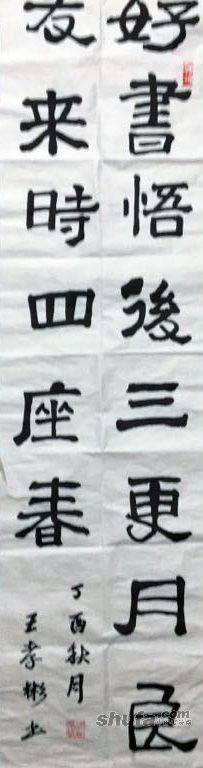 好書悟後三更月良
友来時四座春
丁酉秋月
王孝彬书